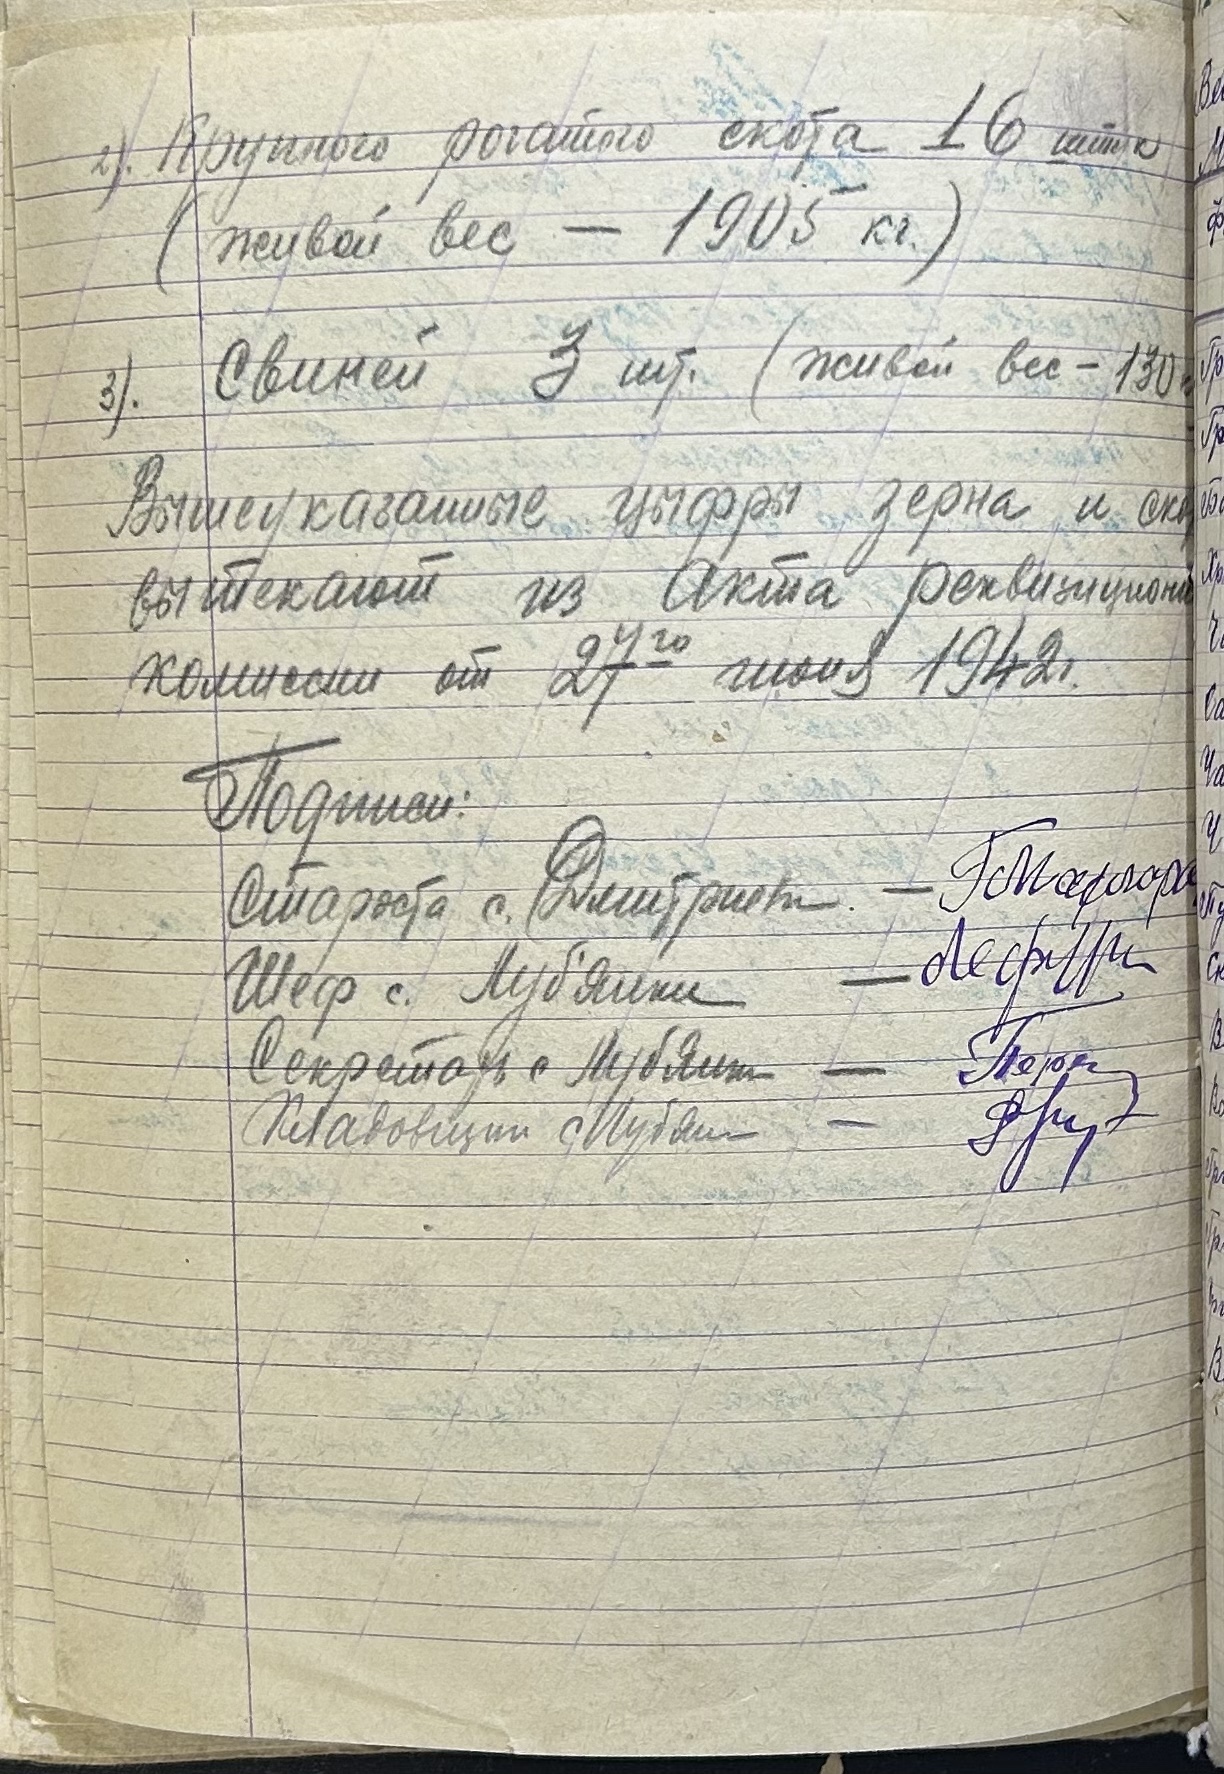 2). Крупного рогатого скота 16 штук
(живой вес — 1905 кг.)
3). Свиней 3 шт. (живой вес – 130
Вышеуказанные цыфры зерна и ско
вытекают из Акта реквизиционн
комиссии от 27го июня 1942г.
Подписи:
Староста с. Дмитриевк. —
Шеф с. Лубянки —
Секретарь с Лубянк —
Кладовщик с Лубян —